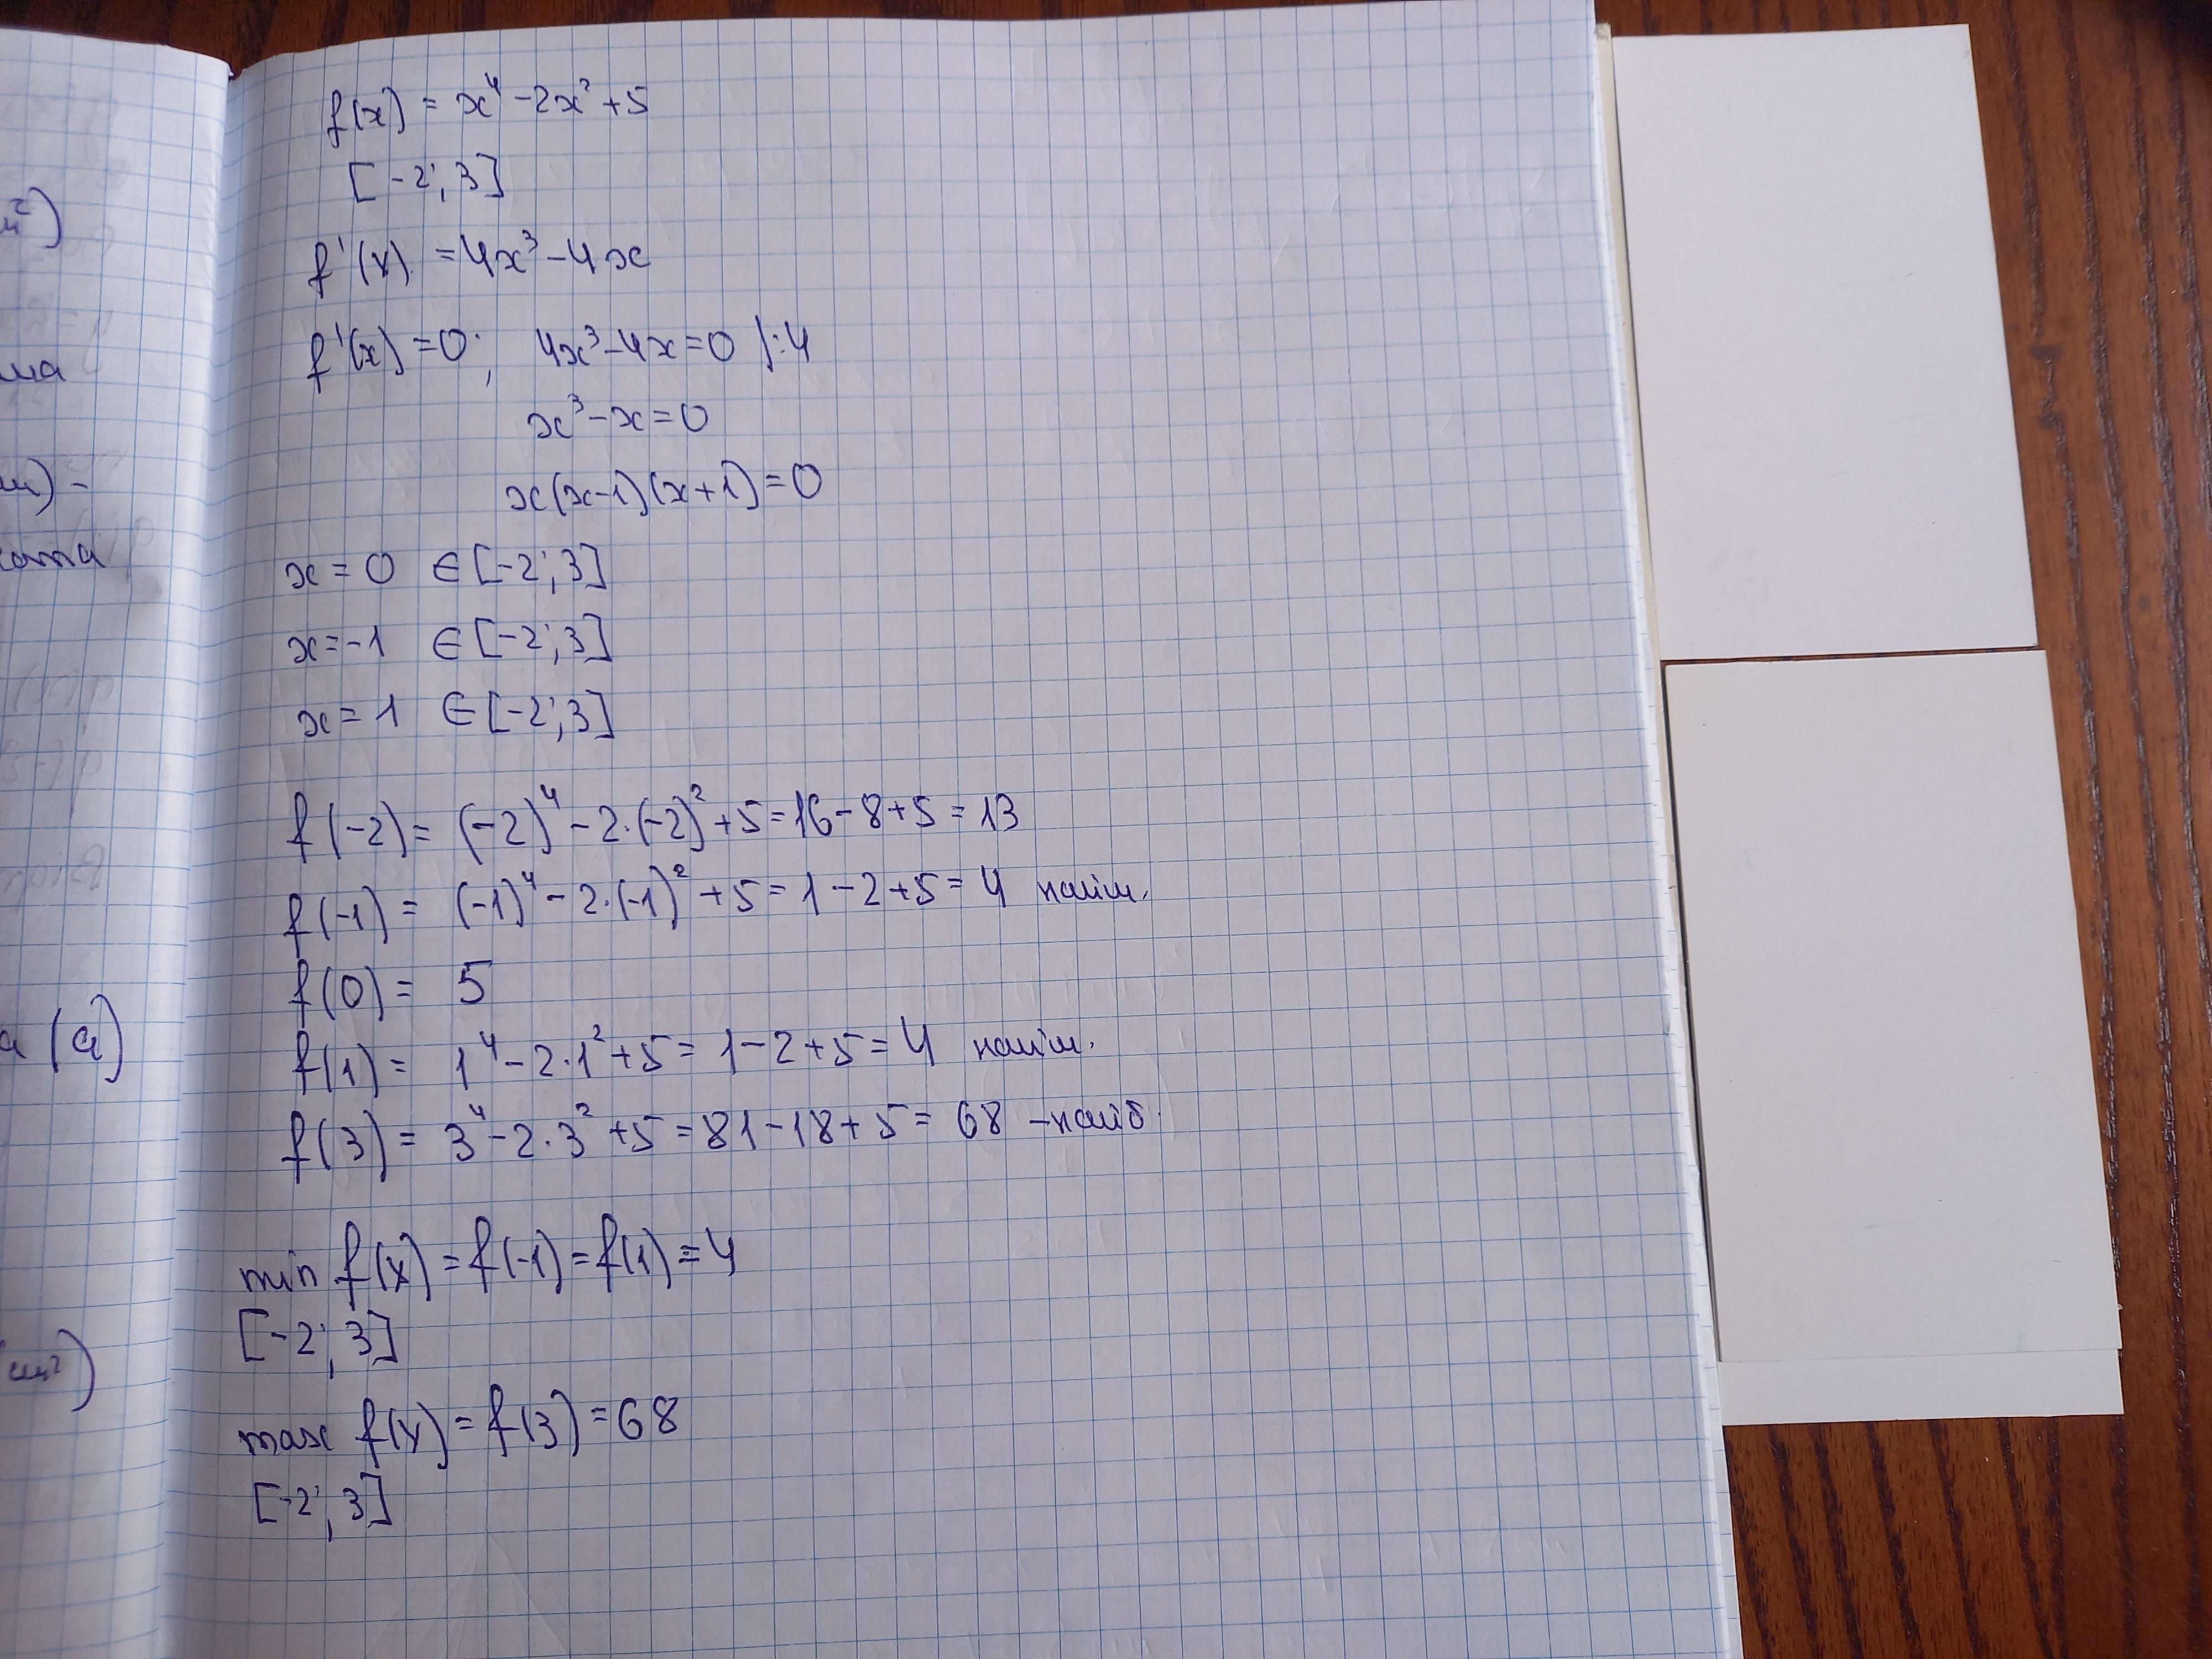 f(x) = x⁴ - 2x² + 5
[-2; 3]
f'(x) = 4x³ - 4x
f'(x) = 0; 4x³ - 4x = 0 |:4
x³ - x = 0
x(x-1)(x+1) = 0
x = 0 ∈ [-2; 3]
x = -1 ∈ [-2; 3]
x = 1 ∈ [-2; 3]
f(-2) = (-2)⁴ - 2·(-2)² + 5 = 16 - 8 + 5 = 13
f(-1) = (-1)⁴ - 2·(-1)² + 5 = 1 - 2 + 5 = 4 найм.
f(0) = 5
f(1) = 1⁴ - 2·1² + 5 = 1 - 2 + 5 = 4 найм.
f(3) = 3⁴ - 2·3² + 5 = 81 - 18 + 5 = 68 - найб.
min f(x) = f(-1) = f(1) = 4
[-2; 3]
max f(x) = f(3) = 68
[-2; 3]